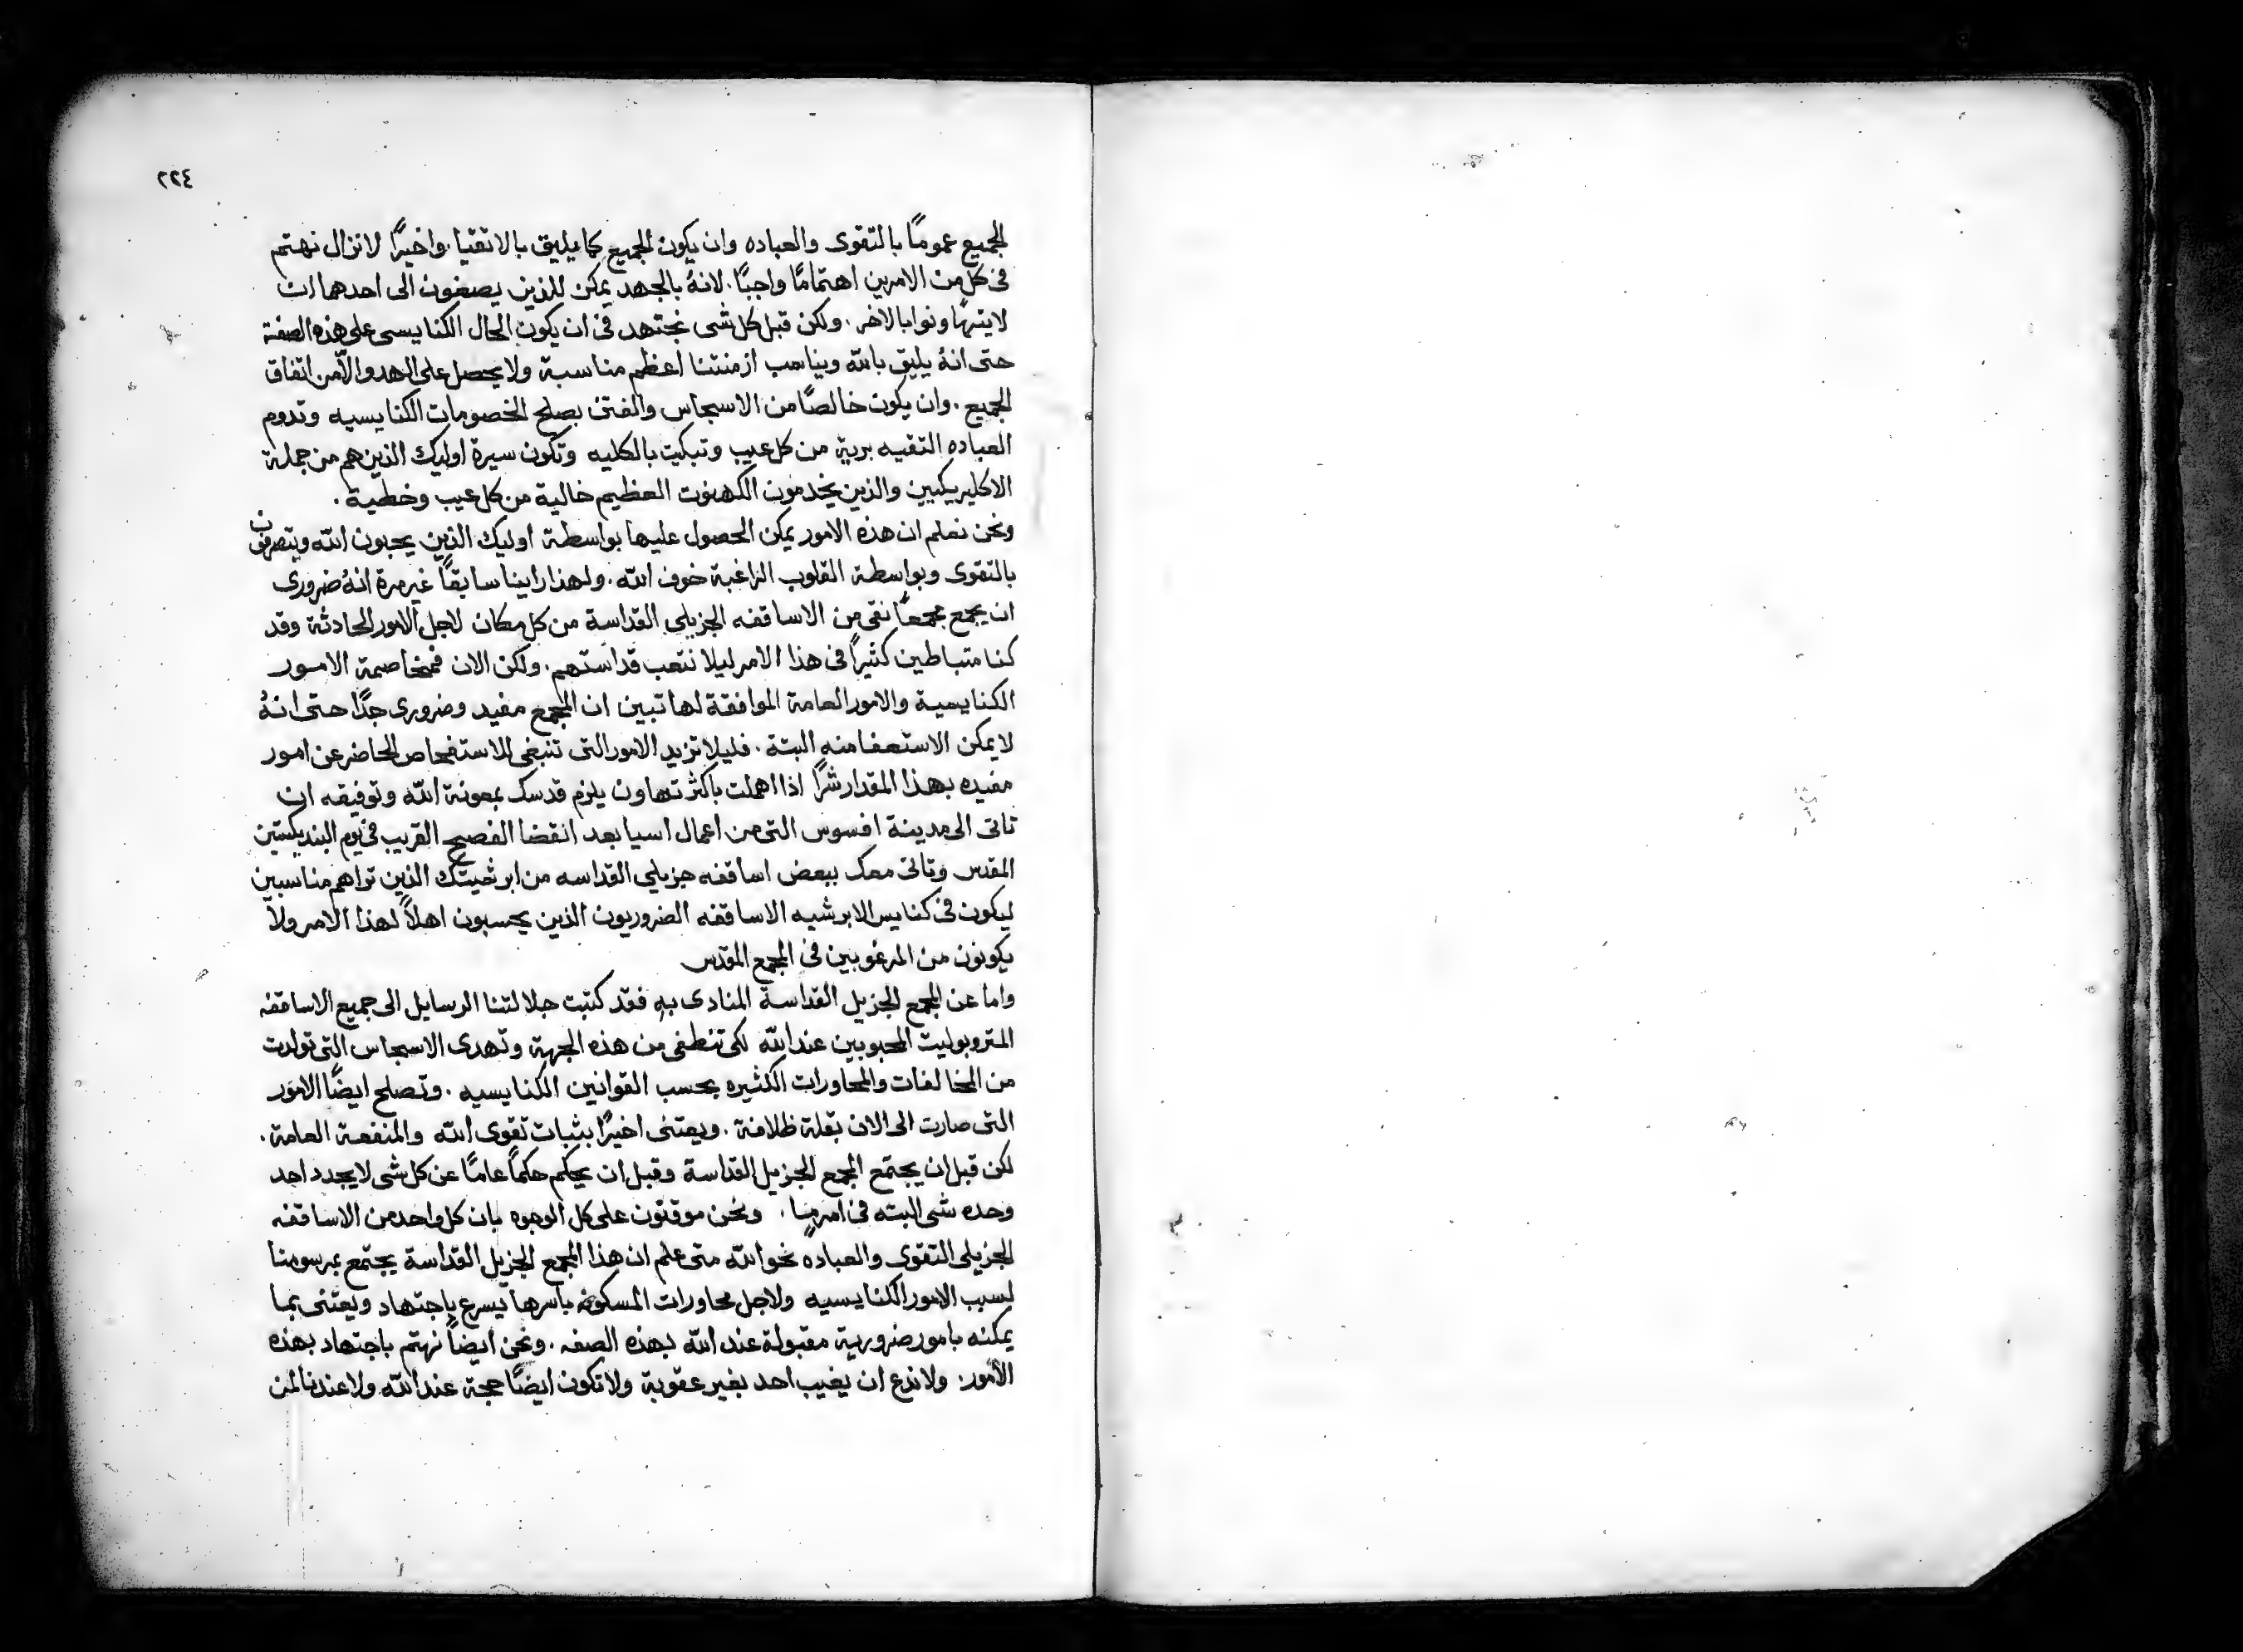 ٢٢٤
الجميع عمومًا بالتقوى والعباده وان يكون الجميع كما يليق بالاتقيا. واخيرًا لا نزال نهتم
فى كل من الامرين اهتمامًا واجبًا. لانهُ بالجهد يمكن للذين يصغون الى احدهما ان
لا يتهاونوا بالاخر. ولكن قبل كل شى نجتهد فى ان يكون الحال الكنايسى على هذه الصفة
حتى انهُ يليق بالله ويناسب ازمنتنا اعظم مناسبة ولا يحصل على الهدو الا من اتفاق
الجميع. وان يكون خالصًا من الاسجاس والفتن بصلح الخصومات الكنايسيه وتدوم
العباده التقيه برية من كل عيب وتبكيت بالكليه وتكون سيرة اوليك الذين هم من جملة
الاكليريكيين والذين يخدمون الكهنوت العظيم خالية من كل عيب وخطية.
ونحن نعلم ان هذه الامور يمكن الحصول عليها بواسطة اوليك الذين يحبون الله ويتصرفون
بالتقوى وبواسطة القلوب الراغبة خوف الله. ولهذا راينا سابقًا غير مرة انهُ ضرورى
ان يجمع مجمعًا نقى من الاساقفه الجزيلى القداسة من كل مكان لاجل الامور الحادثة وقد
كنا متباطين كثيرًا فى هذا الامر ليلا نتعب قداستهم. ولكن الان فمخاصمة الامور
الكنايسية والامور العامة الموافقة لها تبين ان المجمع مفيد وضرورى جدًا حتى انهُ
لا يمكن الاستعفا منه البتة. فليلا تزيد الامور التى تنبغى للاستفحاص الحاضر عن امور
مفيده بهذا المقدار شرًا اذا اهملت باكثر تهاون يلزم قدسك بمعونة الله وتوفيقه ان
تاتى الى مدينة افسوس التى من اعمال اسيا بعد انقضا الفصح القريب فى يوم البنديكستين
المقدس وتاتى معك ببعض اساقفه جزيلى القداسه من ابرشيتك الذين تراهم مناسبين
ليكون فى كنايس الابرشيه الاساقفه الضروريون الذين يحسبون اهلاً لهذا الامر ولا
يكونون من المرغوبين فى المجمع المقدس
واما عن المجمع الجزيل القداسة المنادى به فقد كتبت جلالتنا الرسايل الى جميع الاساقفه
المتروبوليت المحبوبين عند الله لكى تنطفى من هذه الجهة وتهدى الاسجاس التى تولدت
من المخالفات والمحاورات الكثيره بحسب القوانين الكنايسيه. وتصلح ايضًا الامور
التى صارت الى الان بقلة ظلافة. ويعتنى اخيرًا بثبات تقوى الله والمنفعة العامة.
لكن قبل ان يجتمع المجمع الجزيل القداسة وقبل ان يحكم حكمًا عامًا عن كل شى لا يجدد احد
وحده شى البته فى امر ما. ونحن موقنون على كل الوجوه بان كل واحد من الاساقفه
الجزيلى التقوى والعباده نحو الله متى علم ان هذا المجمع الجزيل القداسة يجتمع بمرسومنا
لسبب الامور الكنايسيه ولاجل محاورات المسكونه باسرها يسرع باجتهاد ويعتنى بما
يمكنه بامور ضرورية مقبولة عند الله بهذه الصفه. ونحن ايضًا نهتم باجتهاد بهذه
الامور. ولا ندع ان يغيب احد بغير عقوبة ولا تكون ايضًا حجة عند الله ولا عندنا لمن